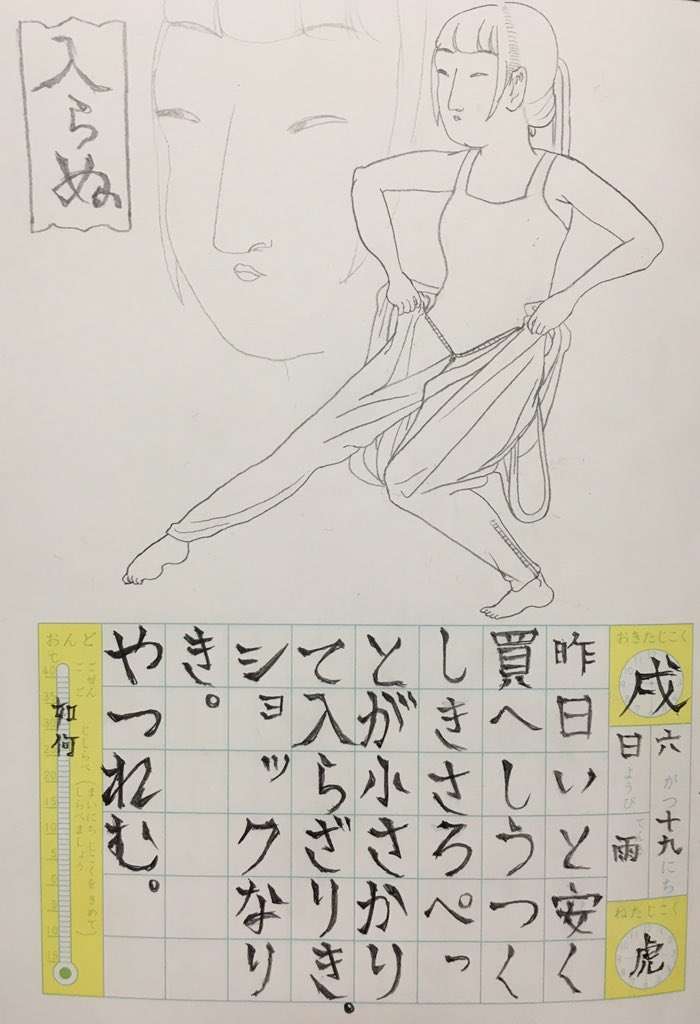 入らぬ
おきたじこく
戌
六がつ十九にち
日ようび
雨
ねたじこく
虎
昨日いと安く
買へしうつく
しきさろぺっ
とが小さかり
て入らざりき。
ショックなり
き。
やつれむ。
おんど
ごぜん
ごご
じしらべ
(まいにち じこくをきめて
しらべましょう)
如何